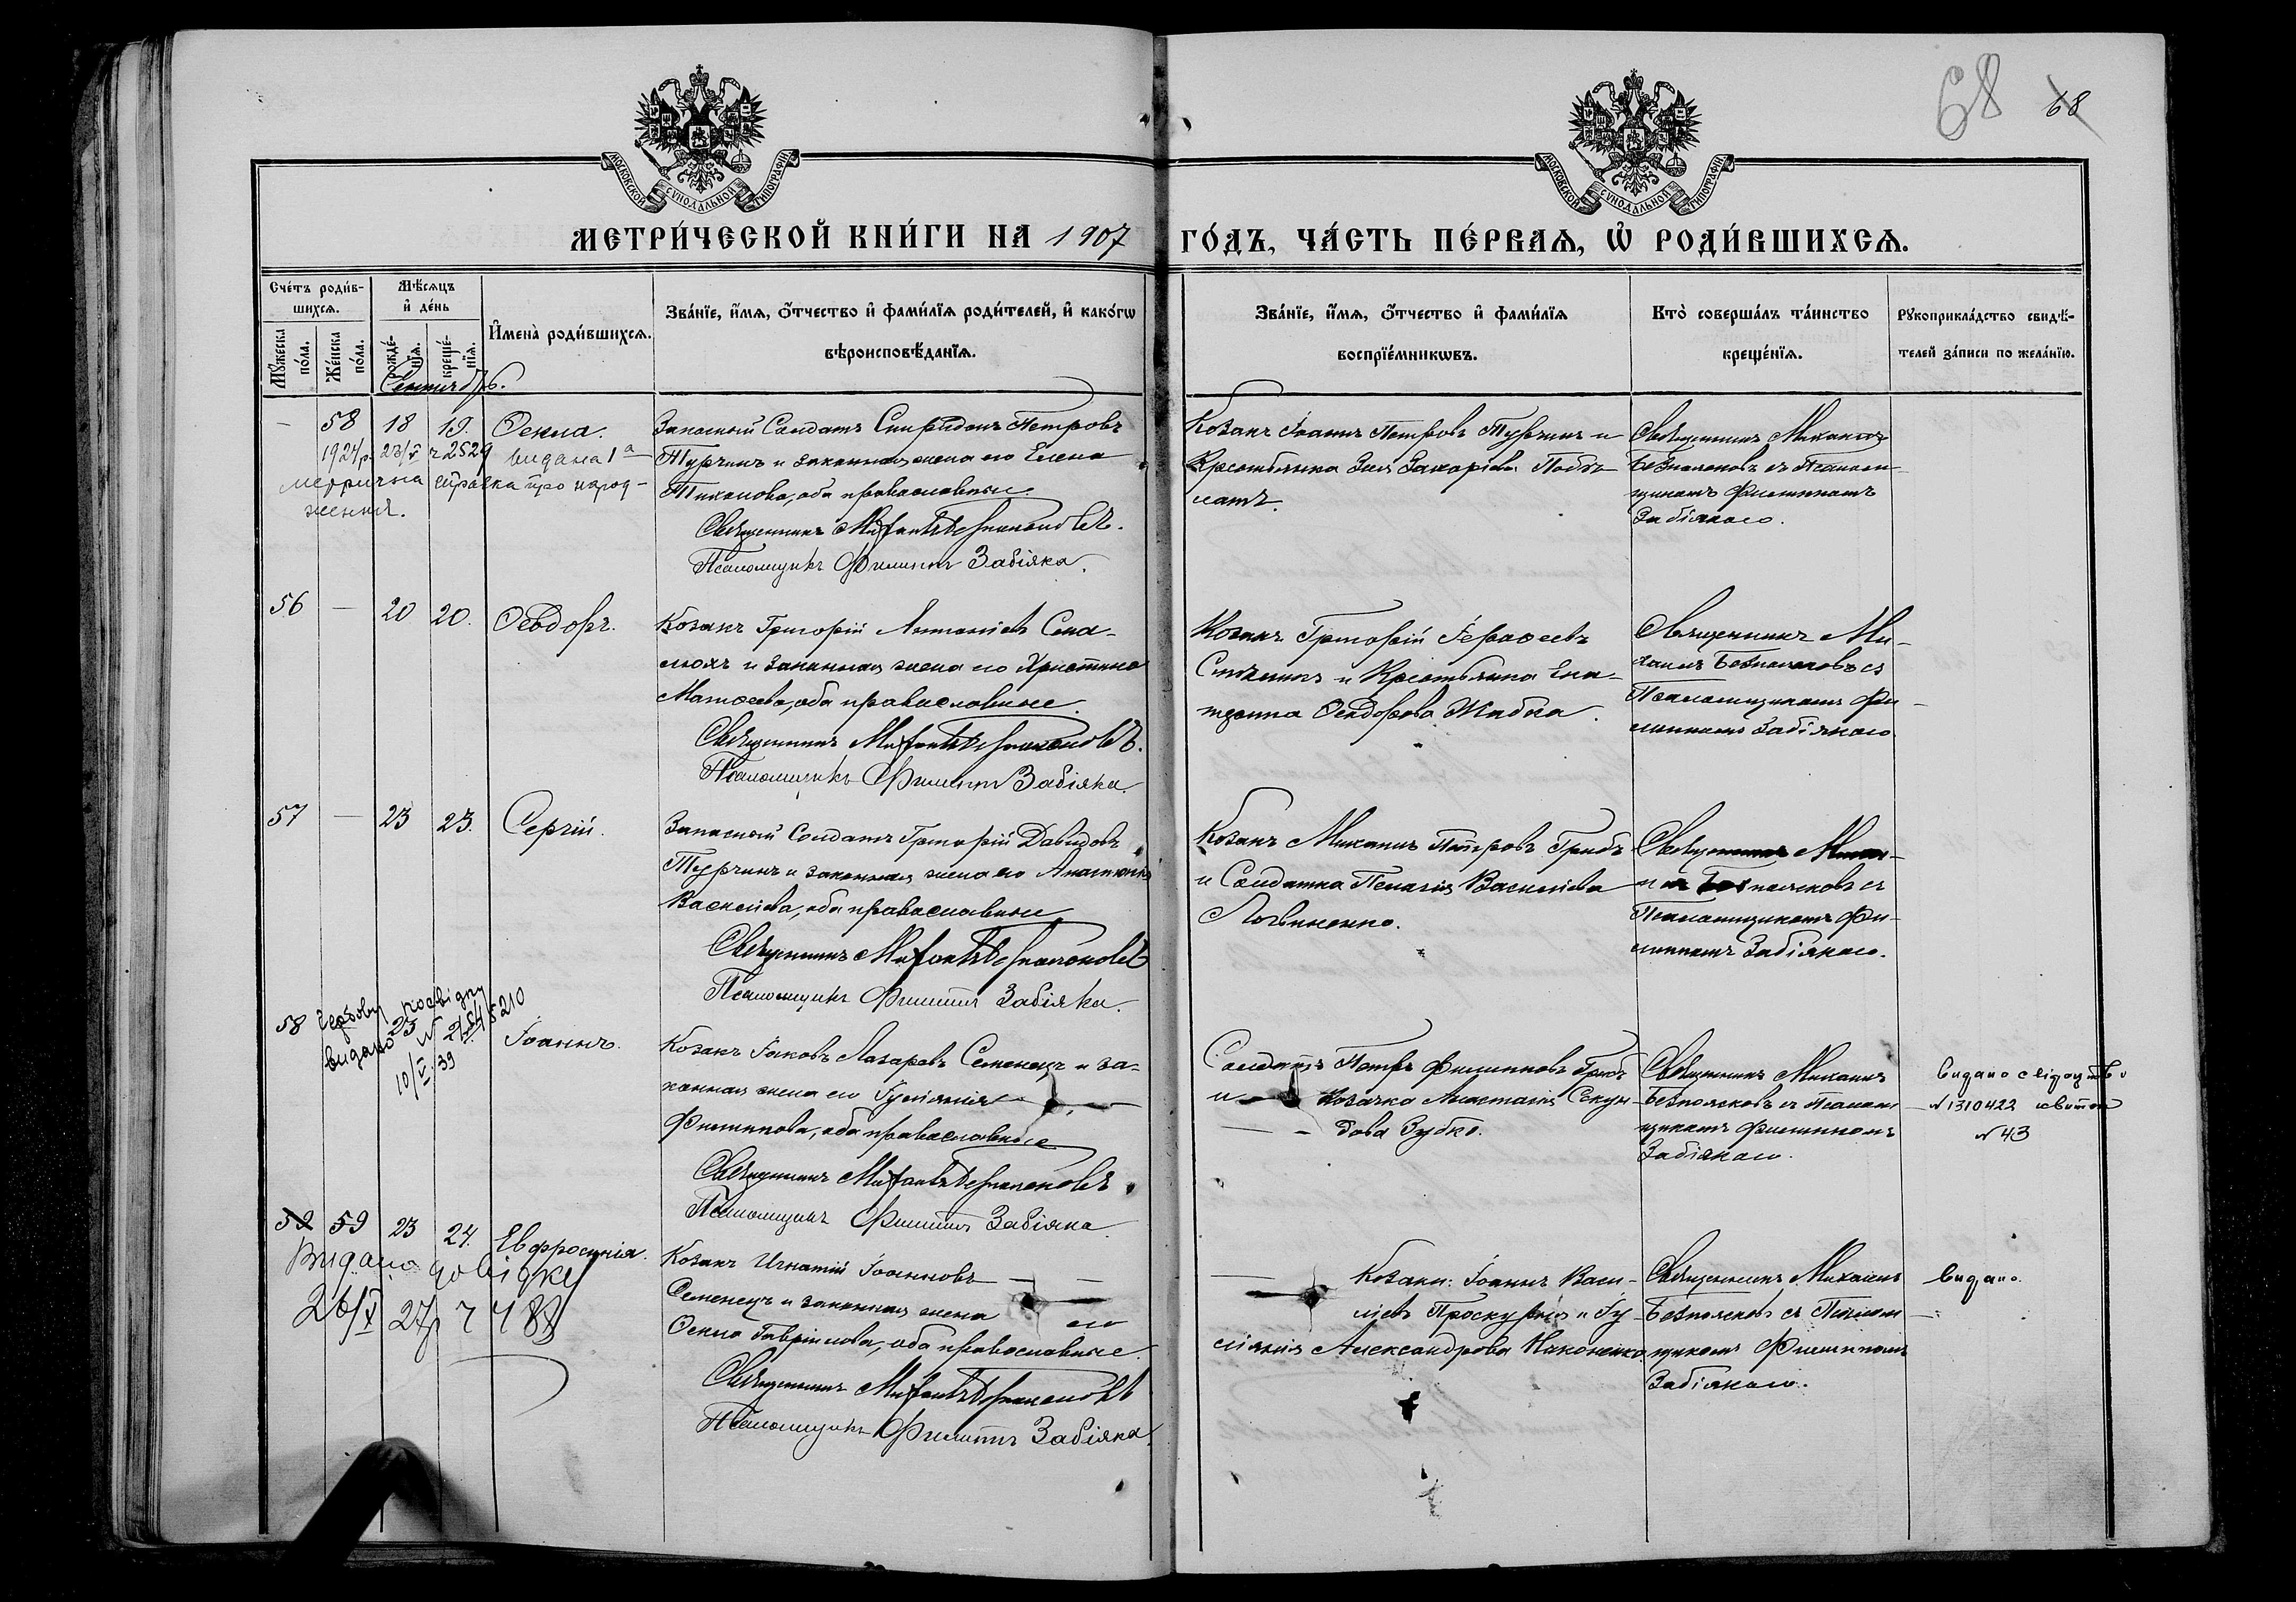 68 68
МОСКОВСКОЙ СѴНОДАЛЬНОЙ ТИПОГРАФІИ
МОСКОВСКОЙ СѴНОДАЛЬНОЙ ТИПОГРАФІИ
МЕТРИ́ЧЕСКОЙ КНИ́ГИ НА 1907 ГО́ДЪ, ЧА́СТЬ ПЕ́РВАѦ, Ѡ҆ РОДИ́ВШИХСѦ.
Сче́тъ роди́в-
шихсѧ.
Мꙋ́жеска по́ла.
Же́нска по́ла.
Мѣ́сѧцъ
и҆ де́нь
рожде́-нїѧ.
креще́-нїѧ.
И҆мена̀ роди́вшихсѧ.
Зва́нїе, и҆́мѧ, ѻ҆́тчество и҆ фами́лїѧ роди́телей, и҆ како́гѡ
вѣроисповѣ́данїѧ.
Зва́нїе, и҆́мѧ, ѻ҆́тчество и҆ фами́лїѧ
воспрїе́мникѡвъ.
Кто̀ соверша́лъ та́инство
креще́нїѧ.
Рꙋкоприкла́дство свидѣ́-
телей за́писи по жела́нїю.
Сентябрь.
— 58 18 19. Ѳекла.
1924 р. 23/V ч 2529 видана 1а
метрична справка про народ-
ження.
Запасный Солдатъ Спиридонъ Петровъ
Турчинъ и законная жена его Елена
Тихонова, оба православные.
Священникъ Михаилъ Безпалковъ.
Псаломщикъ Филиппъ Забіяка.
Козакъ Іоаннъ Петровъ Турчинъ и
Крестьянка Зая Захаріева
Священникъ Михаилъ
Безпалковъ съ Псалом-
щикомъ Филиппомъ
Забіякою.
56 — 20 20. Ѳеодоръ.
Козакъ Григорій Антоніевъ Сма-
люхъ и законная жена его Христина
Матѳеева, оба православные.
Священникъ Михаилъ Безпалковъ.
Псаломщикъ Филиппъ Забіяка.
Козакъ Григорій Іерофеевъ
и Крестьянка Ека-
терина Ѳеодорова Жабка.
Священникъ Ми-
хаилъ Безпалковъ съ
Псаломщикомъ Фи-
липпомъ Забіякою
57 — 23 23. Сергій.
Запасный Солдатъ Григорій Давидовъ
Турчинъ и законная жена его Анастасія
Василіева, оба православные
Священникъ Михаилъ Безпалковъ
Псаломщикъ Филиппъ Забіяка.
Козакъ Михаилъ Петровъ Грибъ
и Солдатка Пелагія Василіева
Логвиненко.
Священникъ Миха-
илъ Безпалковъ съ
Псаломщикомъ Фи-
липпомъ Забіякою.
58 23 Іоаннъ.
посвідку
видано N
10/V 39
Козакъ Іаковъ Лазаревъ Семенецъ и за-
конная жена его Іуліанія
Филиппова, оба православные
Священникъ Михаилъ Безпалковъ
Псаломщикъ Филиппъ Забіяка.
Солдатъ Петръ Филипповъ Грибъ
и Козачка Анастасія Секун-
дова Зубко.
Священникъ Михаилъ
Безпалковъ съ Псалом-
щикомъ Филиппомъ
Забіякою.
Видано свідоцтво
№1310422 квитан
№43
59 59 23 24. Евфросинія.
Видано довідку
26/V 27р ч 488
Козакъ Игнатій Іоанновъ
Семенецъ и законная жена его
Ѳекла Гавріилова, оба православные.
Священникъ Михаилъ Безпалковъ
Псаломщикъ Филиппъ Забіяка.
Козаки: Іоаннъ Васи-
ліевъ Проскурня и Іу-
ліанія Александрова Наконенко.
Священникъ Михаилъ
Безпалковъ съ Псалом-
щикомъ Филиппомъ
Забіякою.
Видано.